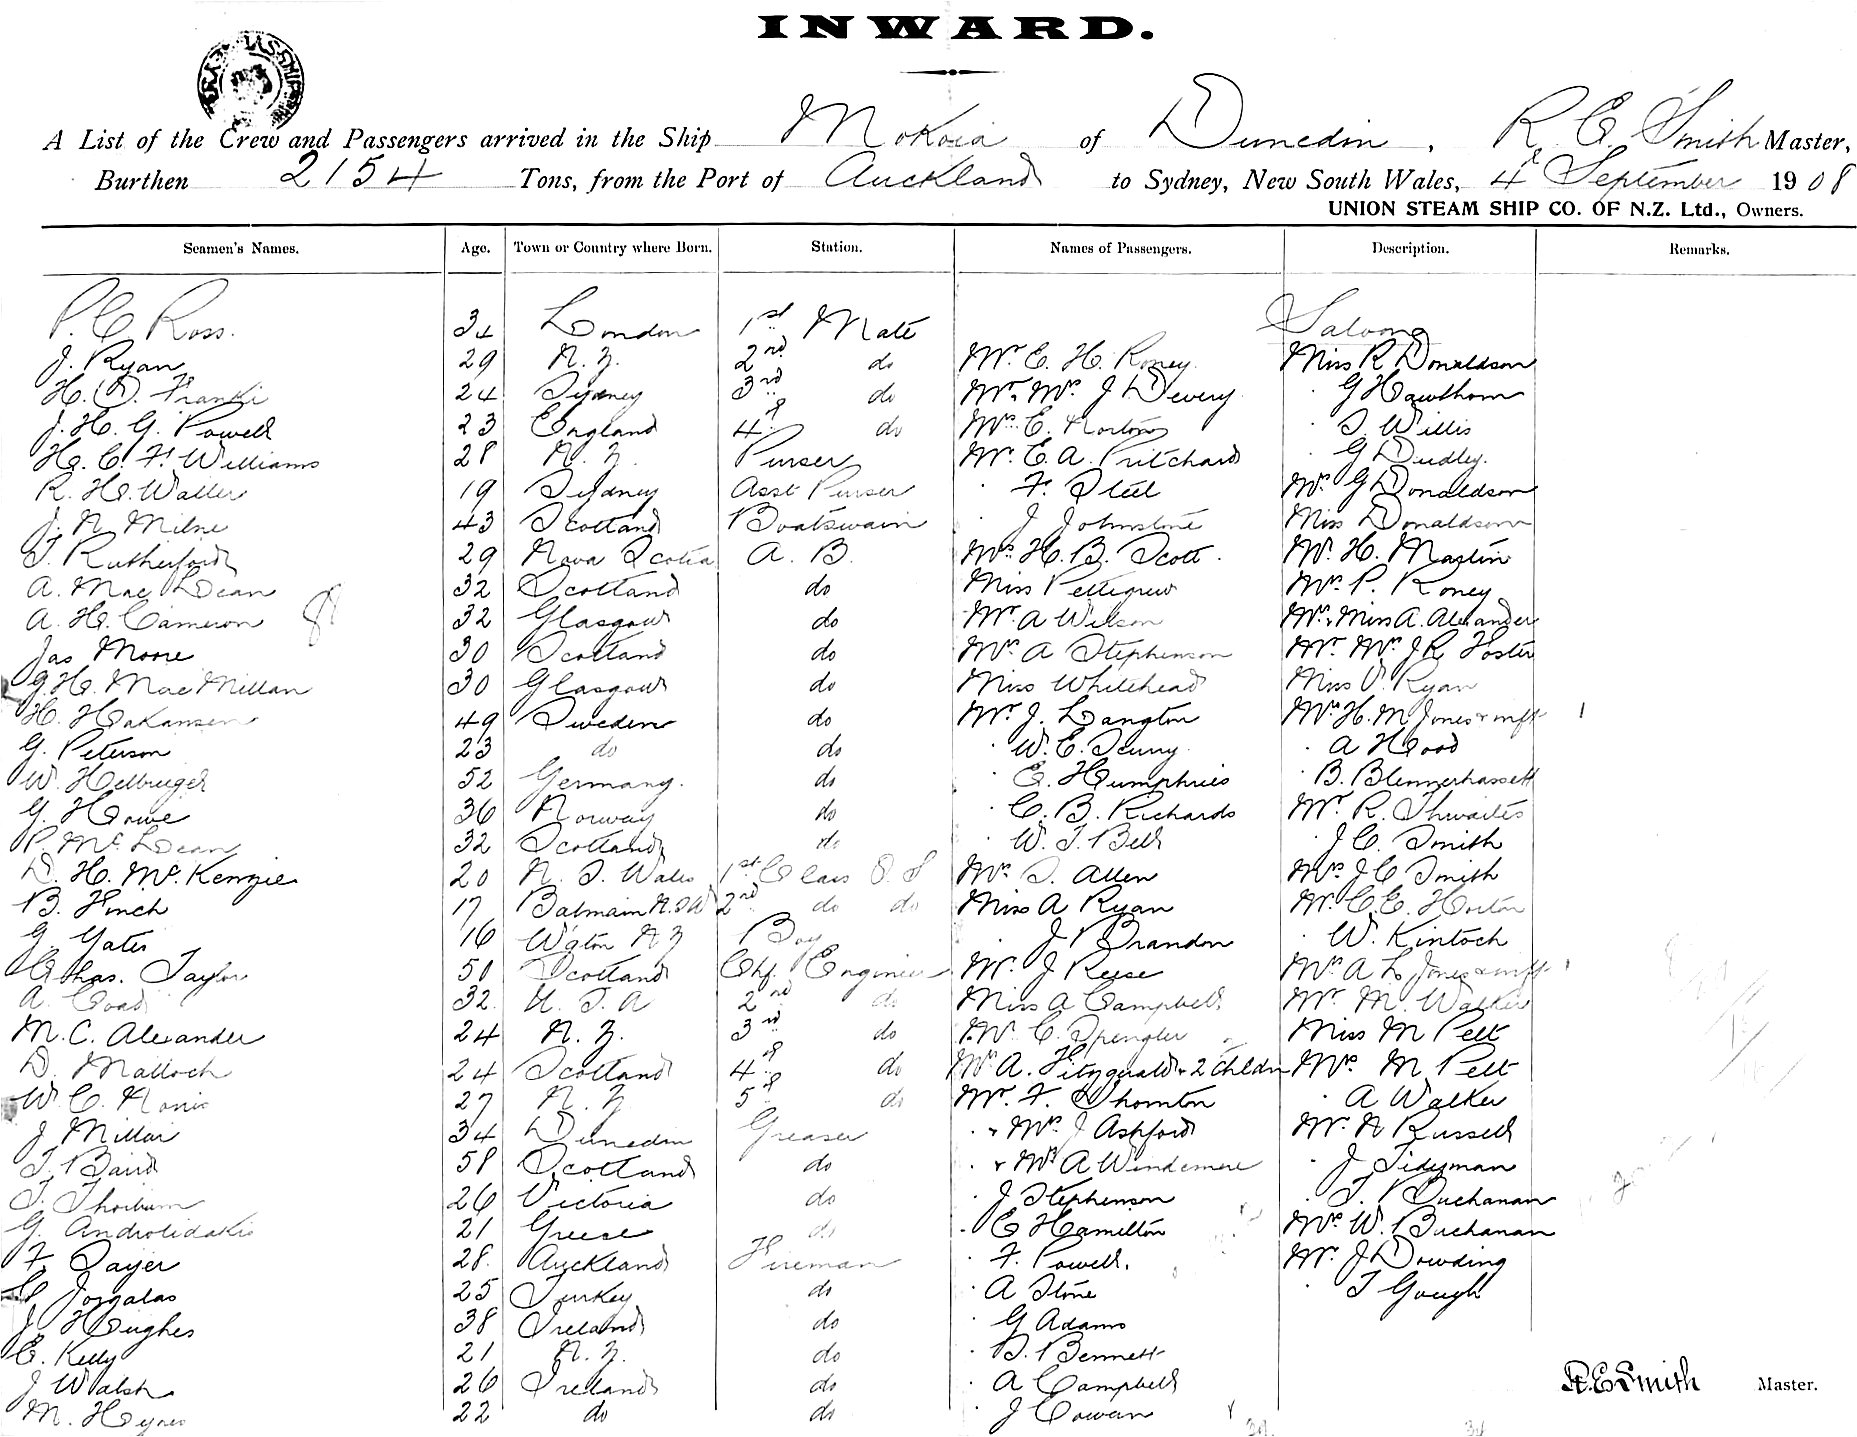 INWARD.
A List of the Crew and Passengers arrived in the Ship Mokoia of Dunedin, R. E. Smith Master,
Burthen 2154 Tons, from the Port of Auckland to Sydney, New South Wales, 4th September 1908
UNION STEAM SHIP CO. OF N.Z. Ltd., Owners.
Seamen's Names. Age. Town or Country where Born. Station. Names of Passengers. Description. Remarks.
P. C Ross. 34 London 1st Mate Saloon
J. Ryan 29 N. Z. 2nd do Mr. E. H. Roney. Miss R Donaldson
H. D. Franki 24 Sydney 3rd do Mr. Mrs. J Devery G Hawthorn
J. H. G. Powell 23 England 4th do Mrs. E. Norton S. Willis
H. C. F. Williams 28 N. Z. Purser Mr. E. A. Pritchard G Dudley.
R. H. Waller 19 Sydney Asst Purser F. Steel Mr. G Donaldson
J. N. Milne 43 Scotland Boatswain J Johnstone Miss Donaldson
T. Rutherford 29 Nova Scotia A. B. Mrs. H. B. Scott. Mr. H. Martin
A. Mac Lean 32 Scotland do Miss Pettigrew Mrs. P. Roney
A. H. Cameron 32 Glasgow do Mr. A Wilson Mrs. Miss A. Alexander
Jas Moore 30 Scotland do Mrs. A Stephenson Mr. Mrs. J R Foster
G. H. Mac Millan 30 Glasgow do Miss Whitehead Miss V. Ryan
H. Hakansen 49 Sweden do Mr. J. Langton Mrs H. M. Jones & inft 1
G. Peterson 23 do do W. E. Scurry A Hood
W. Helbruegel 52 Germany. do E. Humphries B. Blennerhassett
G. Howe 36 Norway do C. B. Richards Mr. R. Thwaites
P. Mc Lean 32 Scotland do W. J. Bell J C. Smith
D. H. Mc Kenzie 20 N. S. Wales 1st Class O. S Mrs. S. Allen Mrs. J C Smith
B. Finch 17 Balmain N.S.W 2nd do do Miss A Ryan Mr. C. E. Horton
G. Yates 16 Wgton N Z Boy J Brandon W. Kintoch
Chas. Taylor 50 Scotland Chf. Engineer Mr. J Reese Mrs A L Jones & inft 1
A. Coad 32. U. S. A 2nd do Miss A Campbell Mr. M. Walker
M. C. Alexander 24 N. Z. 3rd do Mr C. Spengler Miss M Pett
D. Malloch 24 Scotland 4th do Mrs A. Fitzgerald & 2 Chldn Mrs. M Pett
W. C. 27 N. Z 5th do Mr. F. Thornton A Walker
J Millar 34 Dunedin Greaser & Mrs. J Ashford Mr. N Russell
T. Baird 58 Scotland do & Mrs A Windemere J Tidyman
T. Thorburn 26 Victoria do J Stephenson T. Buchanan
G. Androlidakis 21 Greese do C Hamilton Mrs W. Buchanan
F Sayer 28. Auckland Fireman F. Powell. Mr. J Dowding
Jorgalas 25 Turkey do A Stone T Gough
J Hughes 38 Ireland do G Adams
C. Kelly 21 N. Z. do B. Bennett
J Walsh 26 Ireland do A Campbell
M. Hynes 22 do do J Cowan
R. E Smith Master.